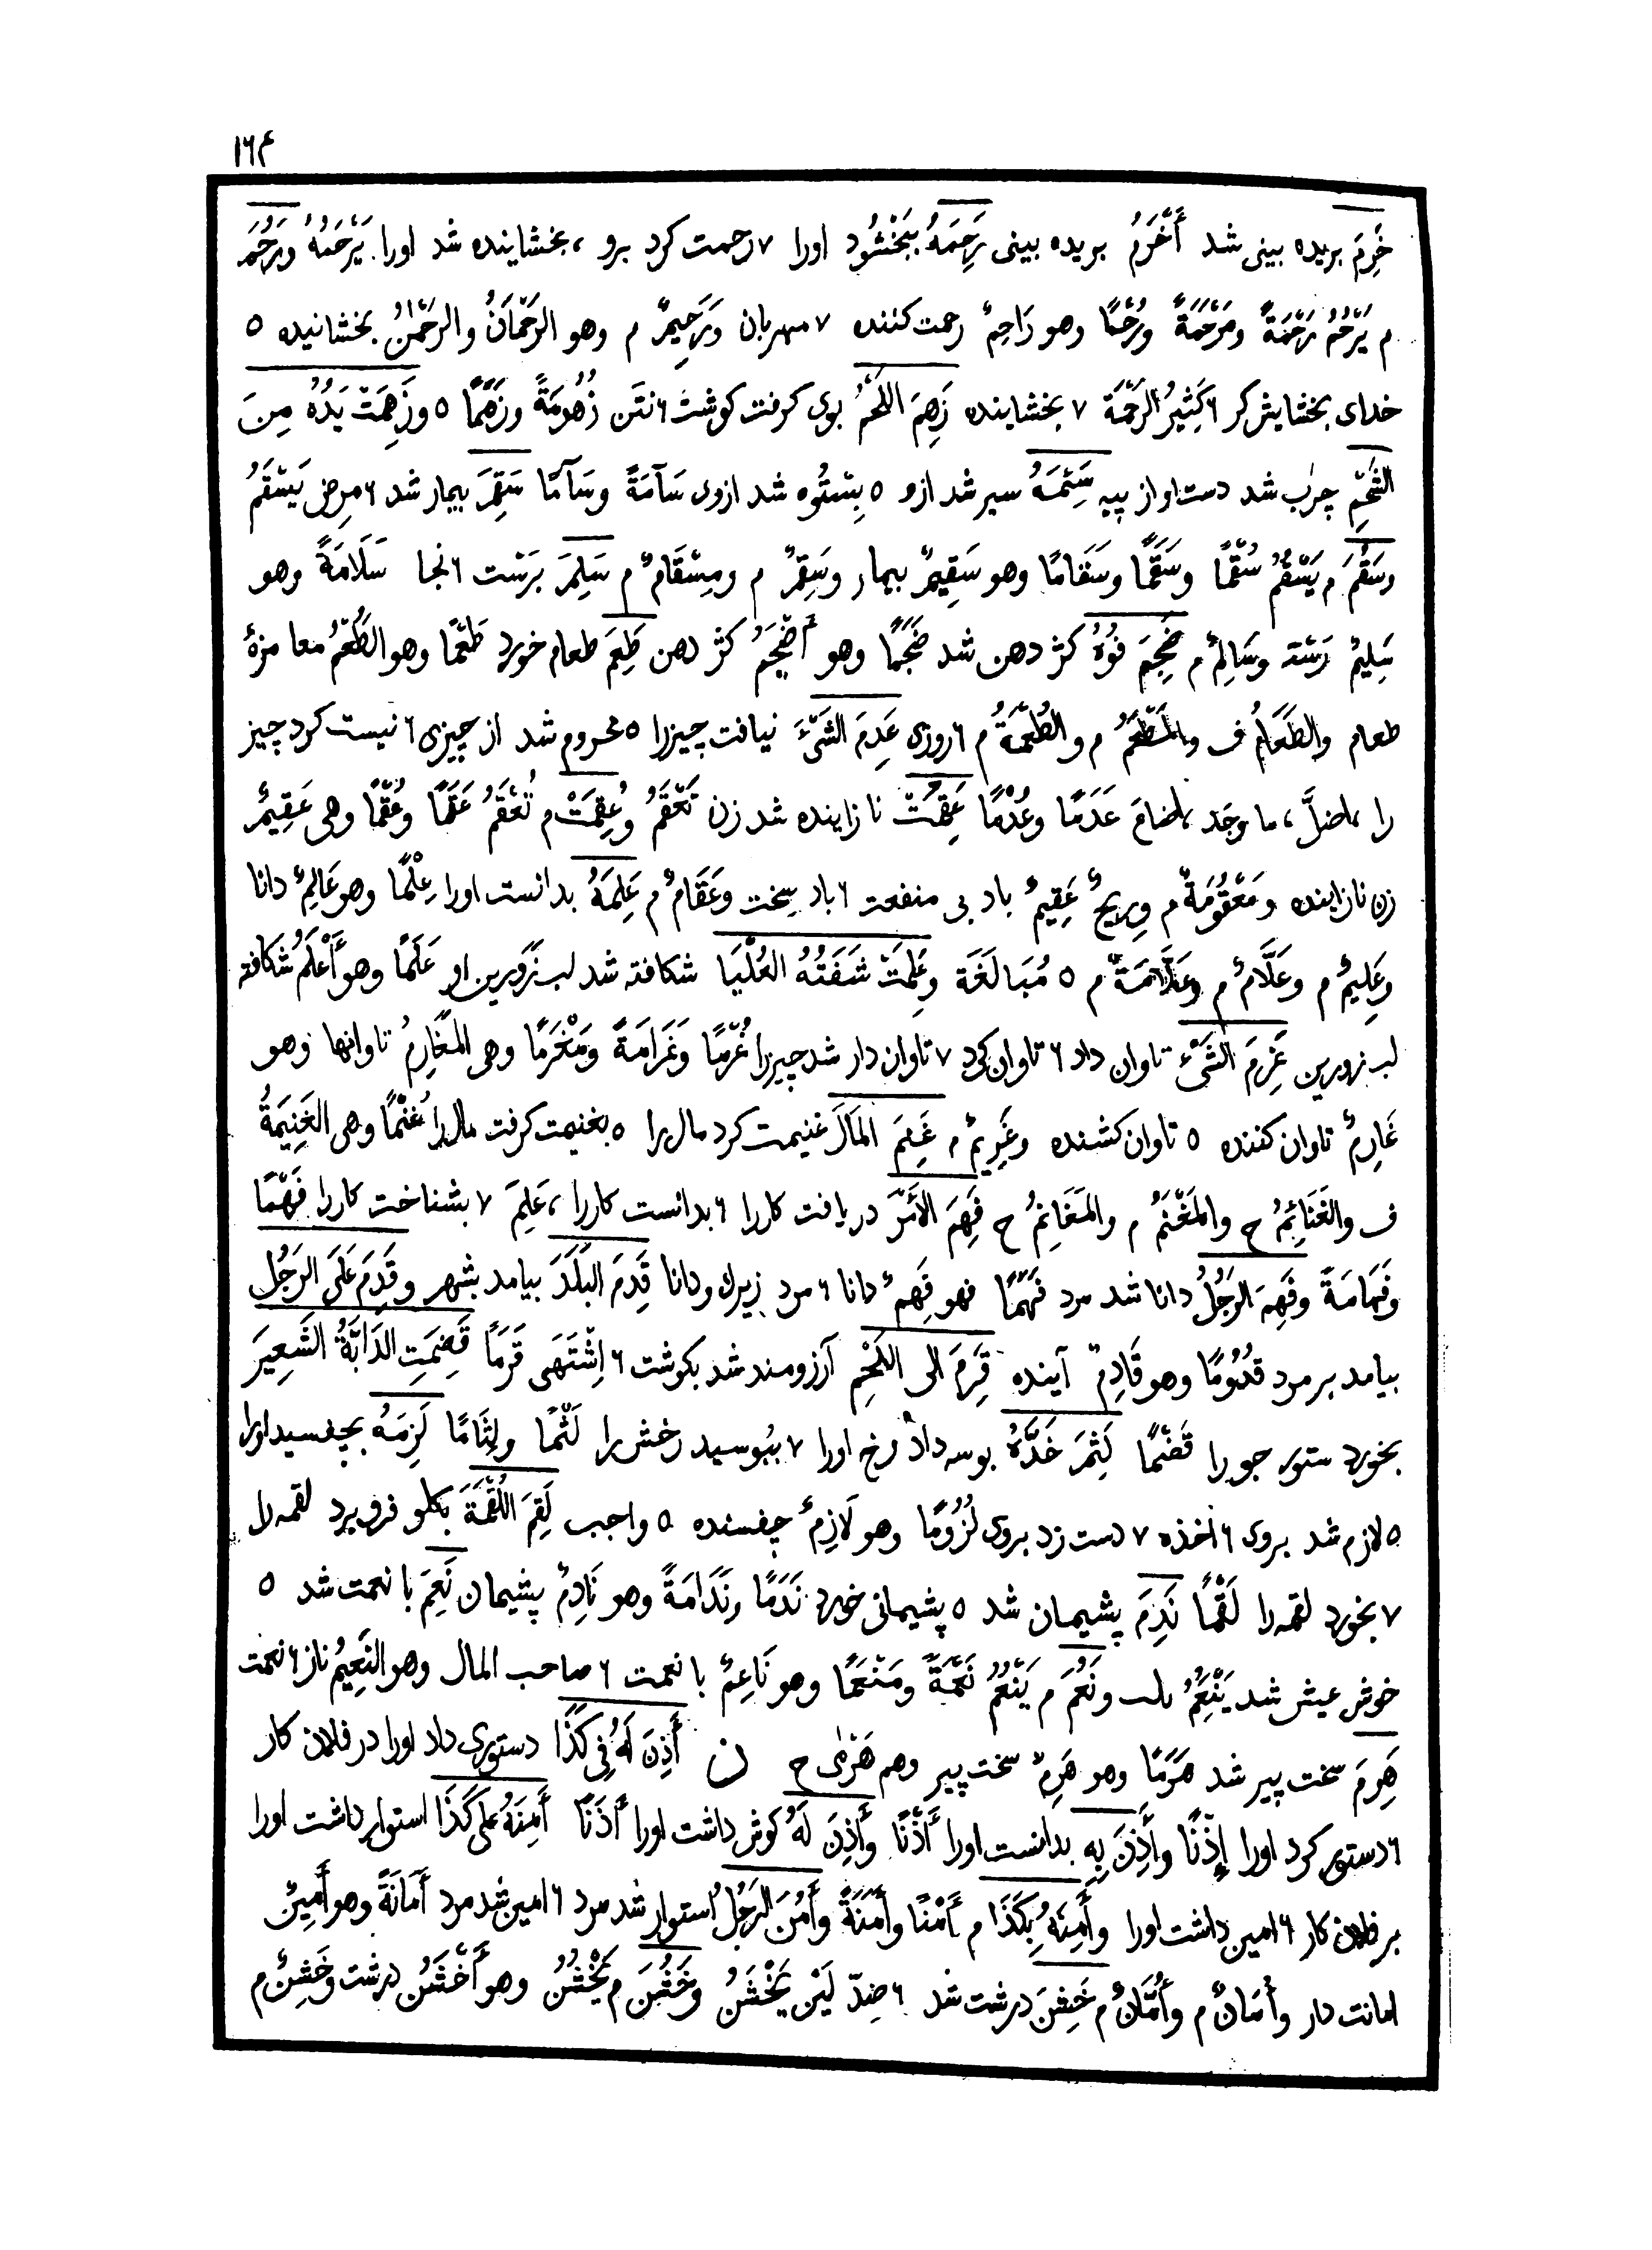 ١٦٤
خَرِمَ بریده بینی شد أَخْرَمُ بریده بینی رَحِمَهُ ببَخْشُود اورا ٧ رحمت کرد برو ، بخشاینده شد اورا یَرْحَمُهُ ورَحُمَ
م یَرْحُمُ رَحْمَةً ومَرْحَمَةً ورُحْمًا وهو رَاحِمٌ رحمت کننده ٧ مهربان ورَحِیمٌ م وهو الرَحْمَانُ والرَحْمٰنُ بخشانیده ٥
خدای بخشایش کر ٦ کَثِیرُ الرَحْمَة ٧ بخشاینده زَهِمَ اللَحْمُ بوی کرفت کوشت ٦ نَتَن زُهُومَةً وزَهَمًا ٥ وزَهِمَتْ یَدُهُ مِنَ
الشَحْمِ چرب شد دست او از پیه سَئِمَهُ سیر شد ازو ٥ بِسْتُوه شد ازوی سَآمَةً وسَآمًا سَقِمَ بیمار شد ٦ مرض یَسْقَمُ
وسَقُمَ م یَسْقُمُ سُقْمًا وسَقَمًا وسَقَامًا وهو سَقِیمٌ بیمار وسَقِمٌ م ومِسْقَامٌ م سَلِمَ بَرَست ٦ نجا سَلَامَةً وهو
سَلِیمٌ رَسْته وسَالِمٌ م ضَجِمَ فُوهُ کژ دهن شد ضَجَمًا وهو أَضْجَمُ کژ دهن طَعِمَ طعام خورد طَعْمًا وهو الطَعْمُ معا مزهٔ
طعام والطَعَامُ ف والمَطْعَمُ م والطُعْمَةُ م ٦ روزی عَدِمَ الشَیْءَ نیافت چیزرا ٥ محروم شد از چیزی ٦ نیست کرد چیز
را ، اضلَّ ، ما وجَد ، اضاعَ عَدَمًا وعُدْمًا عَقِمَتْ نازاینده شد زن تَعْقَمُ وعُقِمَتْ م تُعْقَمُ عَقَمًا وعُقْمًا وهی عَقِیمٌ
زن نازاینده ومَعْقُومَةٌ م ورِیحٌ عَقِیمٌ باد بی منفعت ٦ باد سخت وعَقَامٌ م عَلِمَهُ بدانست اورا عِلْمًا وهو عَالِمٌ دانا
وعَلِیمٌ م وعَلَّامٌ م وعَلَّامَةٌ م ٥ مُبَالَغَة وعَلِمَتْ شَفَتُهُ العُلْیَا شکافته شد لب زَوَرین او عَلَمًا وهو أَعْلَمُ شکافته
لب زورین غَرِمَ الشَیْءَ تاوان داد ٦ تاوان کرد ٧ تاوان دار شد چیزرا غُرْمًا وغَرَامَةً ومَغْرَمًا وهی المَغَارِمُ تاوانها وهو
غَارِمٌ تاوان کننده ٥ تاوان کشنده وغَرِیمٌ م غَنِمَ المَالَ غنیمت کرد مال را ٥ بغنیمت کرفت مال را غُنْمًا وهی الغَنِیمَةُ
ف والغَنَائِمُ ح والمَغْنَمُ م والمَغَانِمُ ح فَهِمَ الأَمْرَ دریافت کاررا ٦ بدانست کاررا ، عَلِمَ ٧ بشناخت کاررا فَهْمًا
وفَهَامَةً وفَهِمَ الرَجُلُ دانا شد مرد فَهَمًا فهو فَهِمٌ دانا ٦ مرد زیرك ودانا قَدِمَ البَلَدَ بیامد بشهر وقَدِمَ عَلَی الرَجُل
بیامد بر مرد قدُومًا وهو قَادِمٌ آینده قَرِمَ الی اللَحْمِ آرزومند شد بکوشت ٦ اِشْتَهَی قَرَمًا قَضِمَتِ الدَابَّةُ الشَعِیرَ
بخورد ستور جورا قَضْمًا لَثِمَ خَدَّهُ بوسه داد رخ اورا ٧ ببُوسید رخش را لَثْمًا ولِثَامًا لَزِمَهُ بچفسید اورا
٥ لازم شد بروی ٦ اخذه ٧ دست زد بروی لُزُومًا وهو لَازِمٌ چفسنده ٥ واجب لَقِمَ اللُقْمَةَ بکلو فرو برد لقمه را
٧ بخورد لقمه را لَقْمًا نَدِمَ پشیمان شد ٥ پشیمانی خورد نَدَمًا ونَدَامَةً وهو نَادِمٌ پشیمان نَعِمَ با نعمت شد ٥
خوش عیش شد یَنْعِمُ ونَعُمَ م یَنْعُمُ نَعْمَةً ومَنْعَمًا وهو نَاعِمٌ با نعمت ٦ صاحب المال وهو النَعِیمُ ناز ٦ نعمت
هَرِمَ سخت پیر شد هَرَمًا وهو هَرِمٌ سخت پیر وهم هَرْمٰی ح ن أَذِنَ لَهُ فِی کَذَا دستوری داد اورا در فلان کار
٦ دستور کرد اورا إِذْنًا وأَذِنَ بِهِ بدانست اورا أَذْنًا وأَذِنَ لَهُ کوش داشت اورا أَذَنًا أَمِنَهُ عَلی کَذَا استوار داشت اورا
بر فلان کار ٦ امین داشت اورا وأَمِنَهُ بِکَذَا م أَمْنًا وأَمَنَةً وأَمُنَ الرَجُلُ استوار شد مرد ٦ امین شد مرد أَمَانَةً وهو أَمِینٌ
امانت دار وأَمَانٌ م وأُمَّانٌ م خَشِنَ درشت شد ٦ ضِدّ لَیْن یَخْشَنُ وخَشُنَ م یَخْشُنُ وهو أَخْشَنُ درشت وخَشِنٌ م